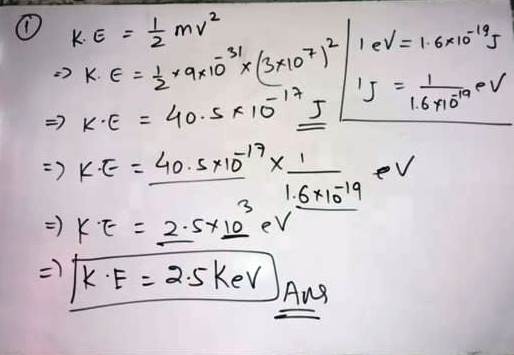 ① K.E = 1/2 mv²
=> K.E = 1/2 × 9×10⁻³¹ × (3×10⁷)²
=> K.E = 40.5×10⁻¹⁷ J
=> K.E = 40.5×10⁻¹⁷ × 1/1.6×10⁻¹⁹ eV
=> K.E = 2.5×10³ eV
=> K.E = 2.5 KeV Ans
1 eV = 1.6×10⁻¹⁹ J
1J = 1/1.6×10⁻¹⁹ eV